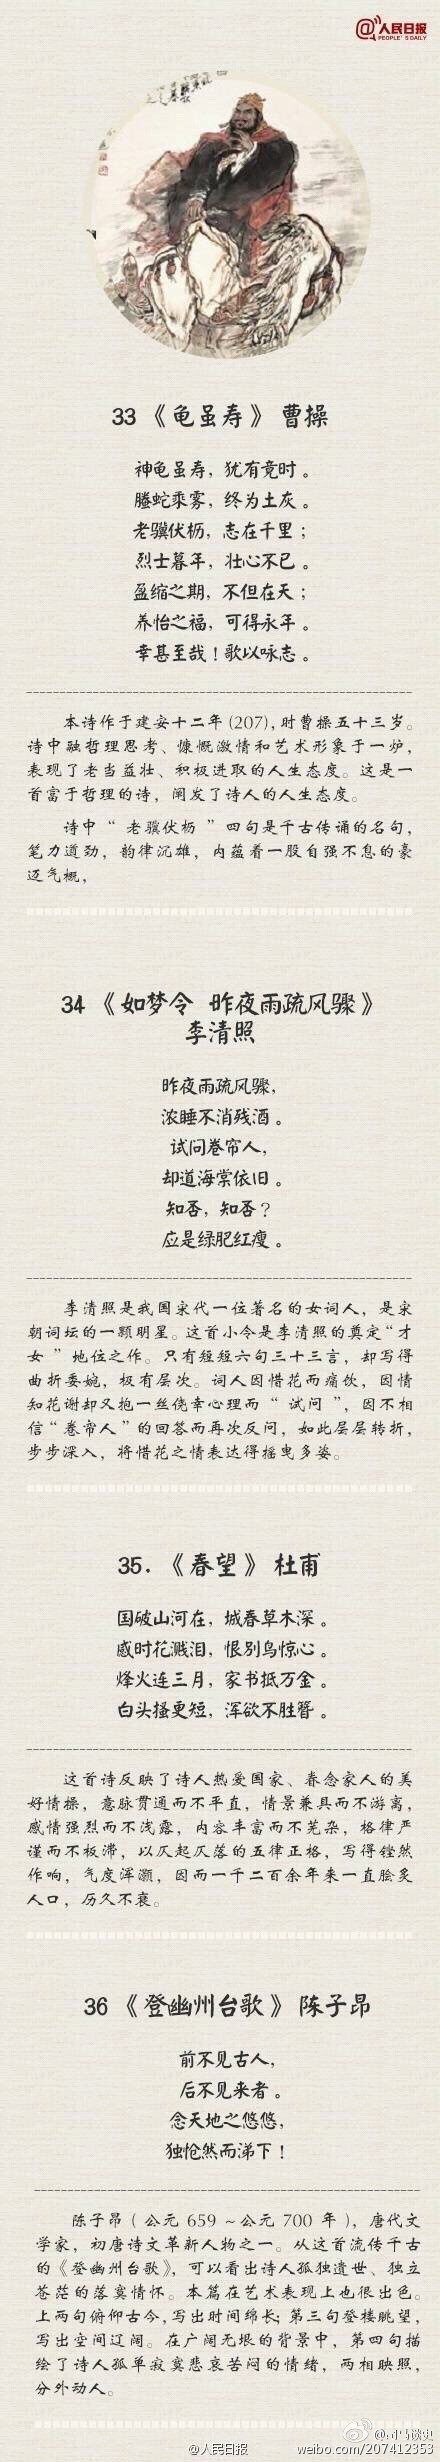 @人民日报
PEOPLE'S DAILY
33《龟虽寿》曹操
神龟虽寿，犹有竟时。
螣蛇乘雾，终为土灰。
老骥伏枥，志在千里；
烈士暮年，壮心不已。
盈缩之期，不但在天；
养怡之福，可得永年。
幸甚至哉！歌以咏志。
本诗作于建安十二年(207)，时曹操五十三岁。
诗中融哲理思考、慷慨激情和艺术形象于一炉，
表现了老当益壮、积极进取的人生态度。这是一
首富于哲理的诗，阐发了诗人的人生态度。
诗中“老骥伏枥”四句是千古传诵的名句，
笔力遒劲，韵律沉雄，内蕴着一股自强不息的豪
迈气概，
34《如梦令 昨夜雨疏风骤》
李清照
昨夜雨疏风骤，
浓睡不消残酒。
试问卷帘人，
却道海棠依旧。
知否，知否？
应是绿肥红瘦。
李清照是我国宋代一位著名的女词人，是宋
朝词坛的一颗明星。这首小令是李清照的奠定“才
女”地位之作。只有短短六句三十三言，却写得
曲折委婉，极有层次。词人因惜花而痛饮，因情
知花谢却又抱一丝侥幸心理而“试问”，因不相
信“卷帘人”的回答而再次反问，如此层层转折，
步步深入，将惜花之情表达得摇曳多姿。
35.《春望》杜甫
国破山河在，城春草木深。
感时花溅泪，恨别鸟惊心。
烽火连三月，家书抵万金。
白头搔更短，浑欲不胜簪。
这首诗反映了诗人热爱国家、眷念家人的美
好情操，意脉贯通而不平直，情景兼具而不游离，
感情强烈而不浅露，内容丰富而不芜杂，格律严
谨而不板滞，以仄起仄落的五律正格，写得铿然
作响，气度浑灏，因而一千二百余年来一直脍炙
人口，历久不衰。
36《登幽州台歌》陈子昂
前不见古人，
后不见来者。
念天地之悠悠，
独怆然而涕下！
陈子昂（公元 659 ~公元 700 年），唐代文
学家，初唐诗文革新人物之一。从这首流传千古
的《登幽州台歌》，可以看出诗人孤独遗世、独立
苍茫的落寞情怀。本篇在艺术表现上也很出色。
上两句俯仰古今，写出时间绵长；第三句登楼眺望，
写出空间辽阔。在广阔无垠的背景中，第四句描
绘了诗人孤单寂寞悲哀苦闷的情绪，两相映照，
分外动人。
@人民日报
weibo.com/207412353